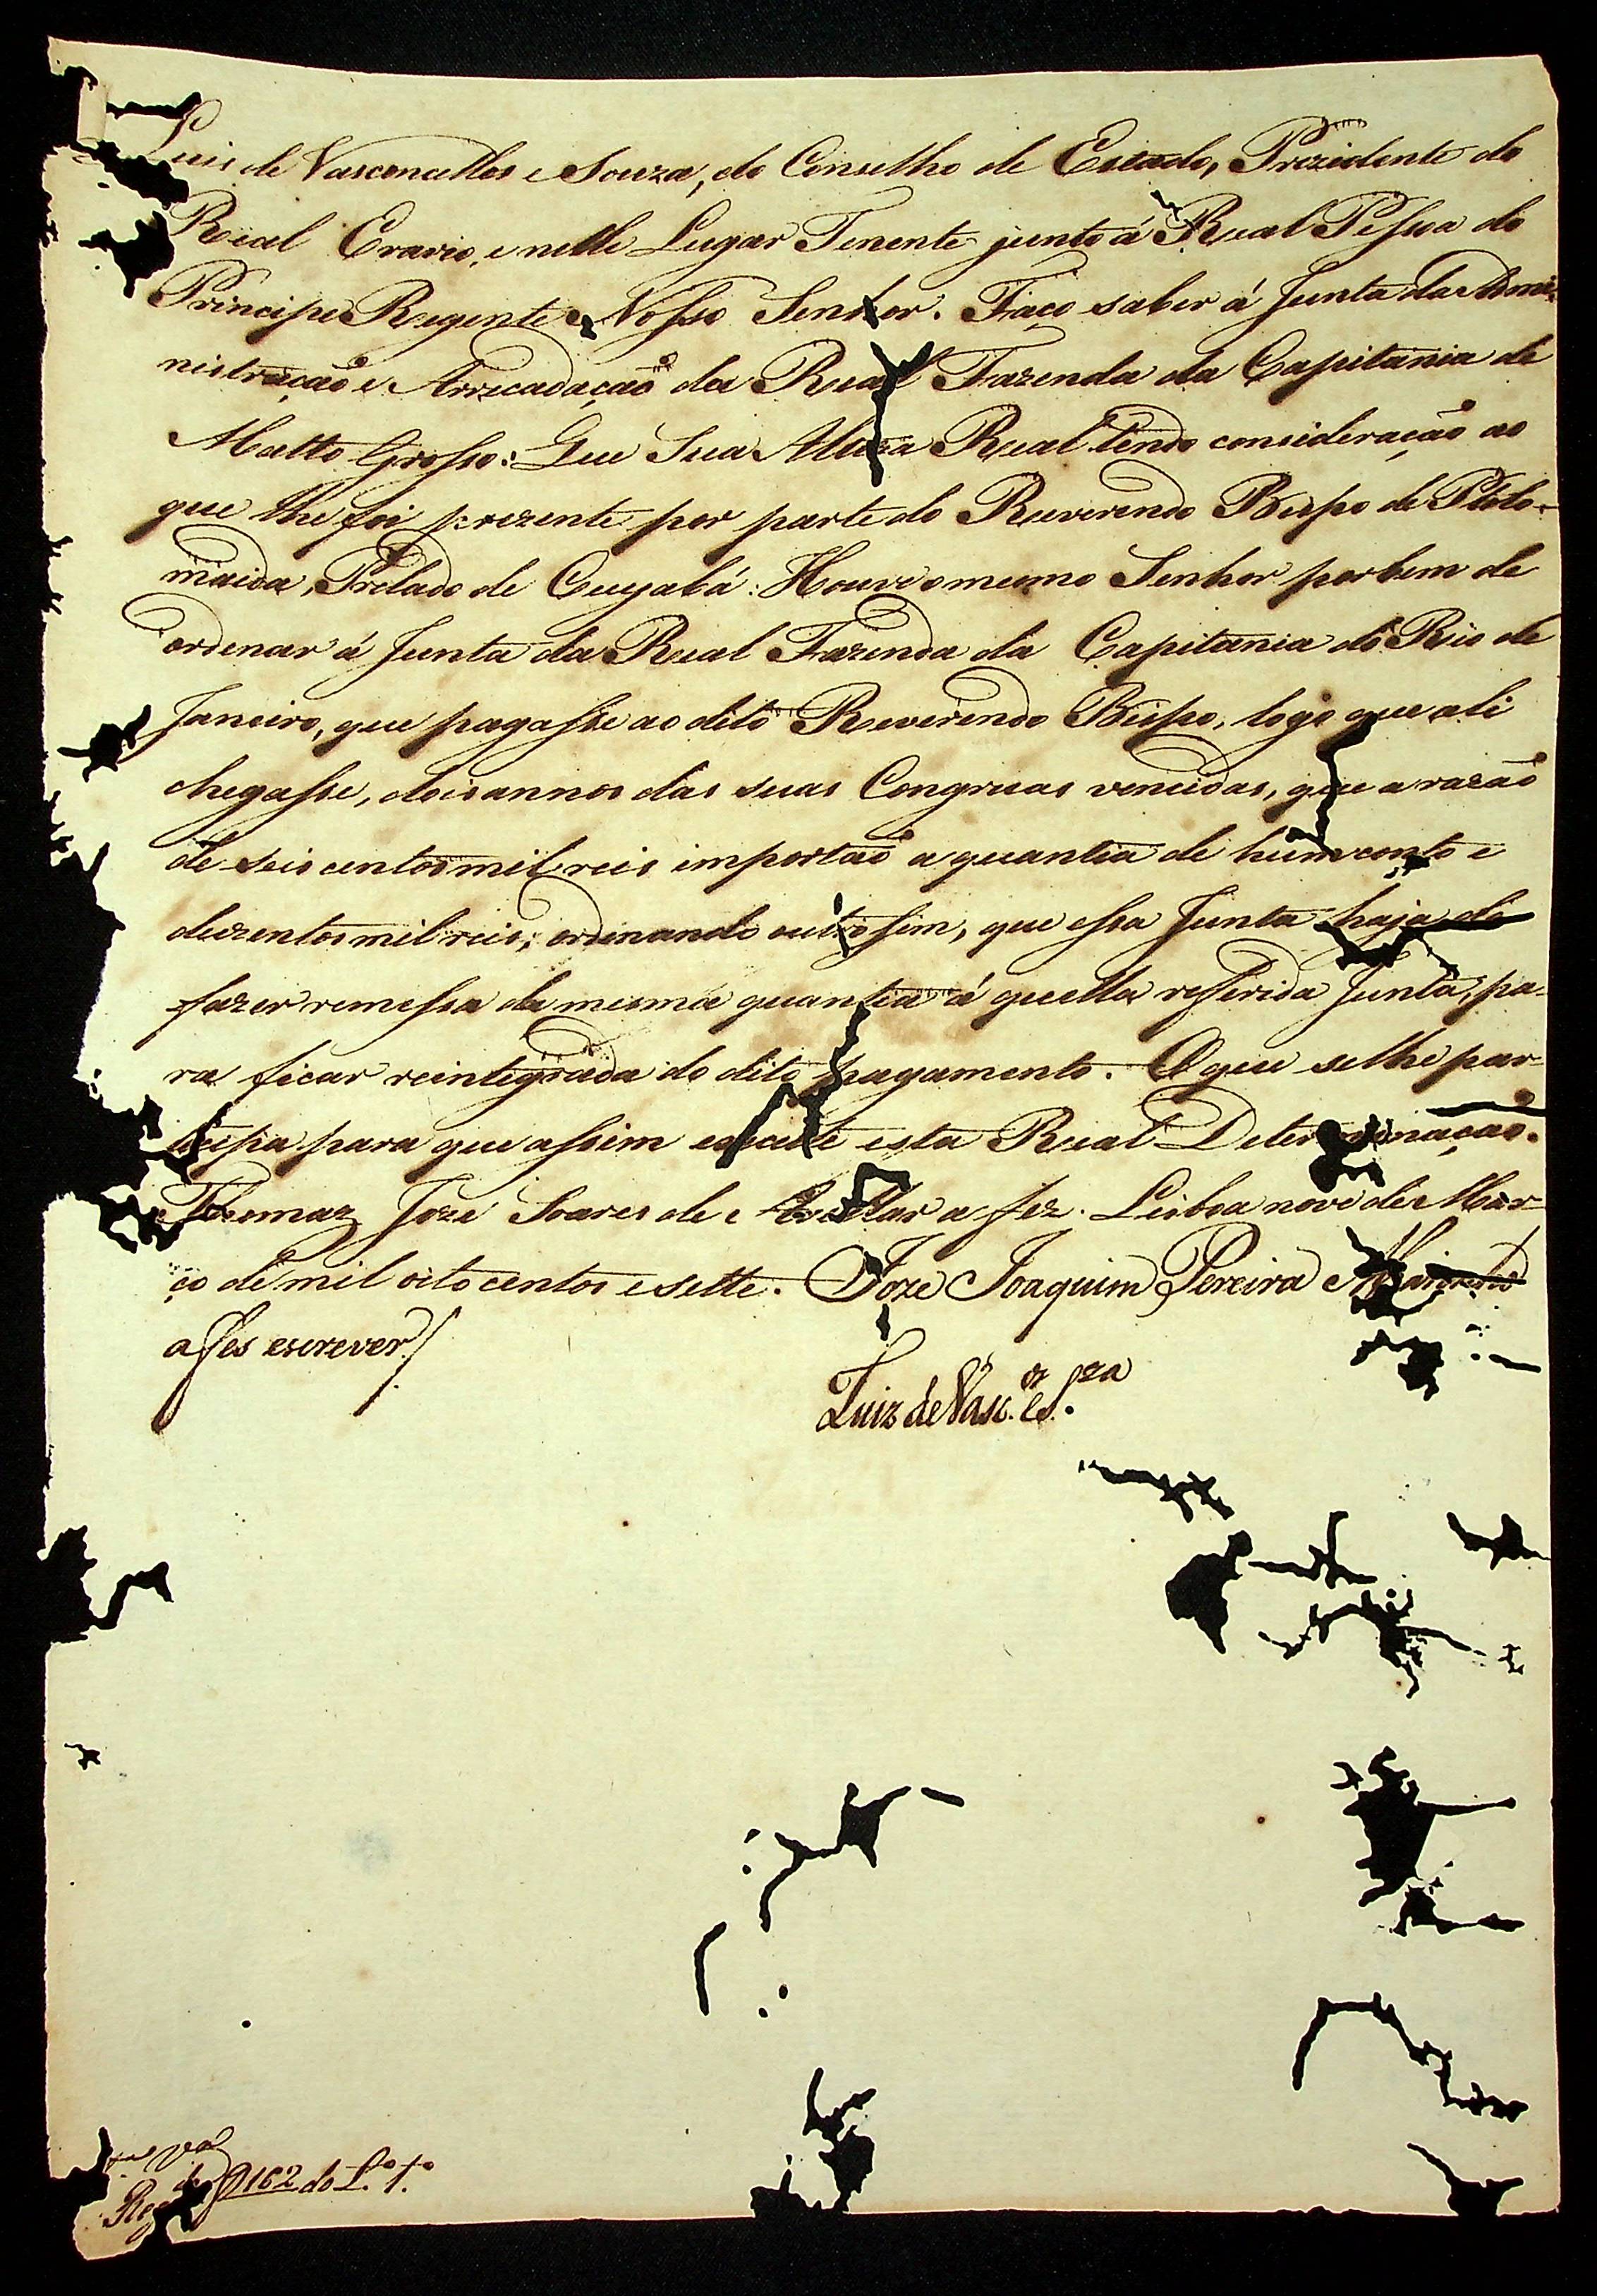 Luis de Vasconcellos e Souza, do Conselho de Estado, Prezidente do
Real Erario, e nelle Lugar Tenente junto á Real Pessoa do
Principe Regente Nosso Senhor. Faço saber á Junta da Admi-
nistração e Arrecadação da Real Fazenda da Capitania de
Matto Grosso: Que Sua Alteza Real tendo consideração ao
que lhe foi prezente por parte do Reverendo Bispo de Ptolo-
maida, Prelado de Cuyabá: Houve o mesmo Senhor por bem de
ordenar á Junta da Real Fazenda da Capitania do Rio de
Janeiro, que pagasse ao dito Reverendo Bispo, logo que ali
chegasse, dois annos das suas Congruas vencidas, que a razão
de seis centos mil reis importaõ a quantia de hum conto e
duzentos mil reis; ordenando outro sim, que essa Junta haja de
fazer remessa da mesma quantia á quella referida Junta, pa-
ra ficar reintegrada do dito pagamento. O que se lhe par-
ticipa para que assim execute esta Real Determinaçaõ.
Thomaz Joze Soares de Avellar a fez. Lisboa nove de Mar-
ço de mil oito centos e sette. Joze Joaquim Pereira Marinho
a fes escrever
Luiz de Vasc.os e S.za
Reg.do f 162 do L.o 1.o